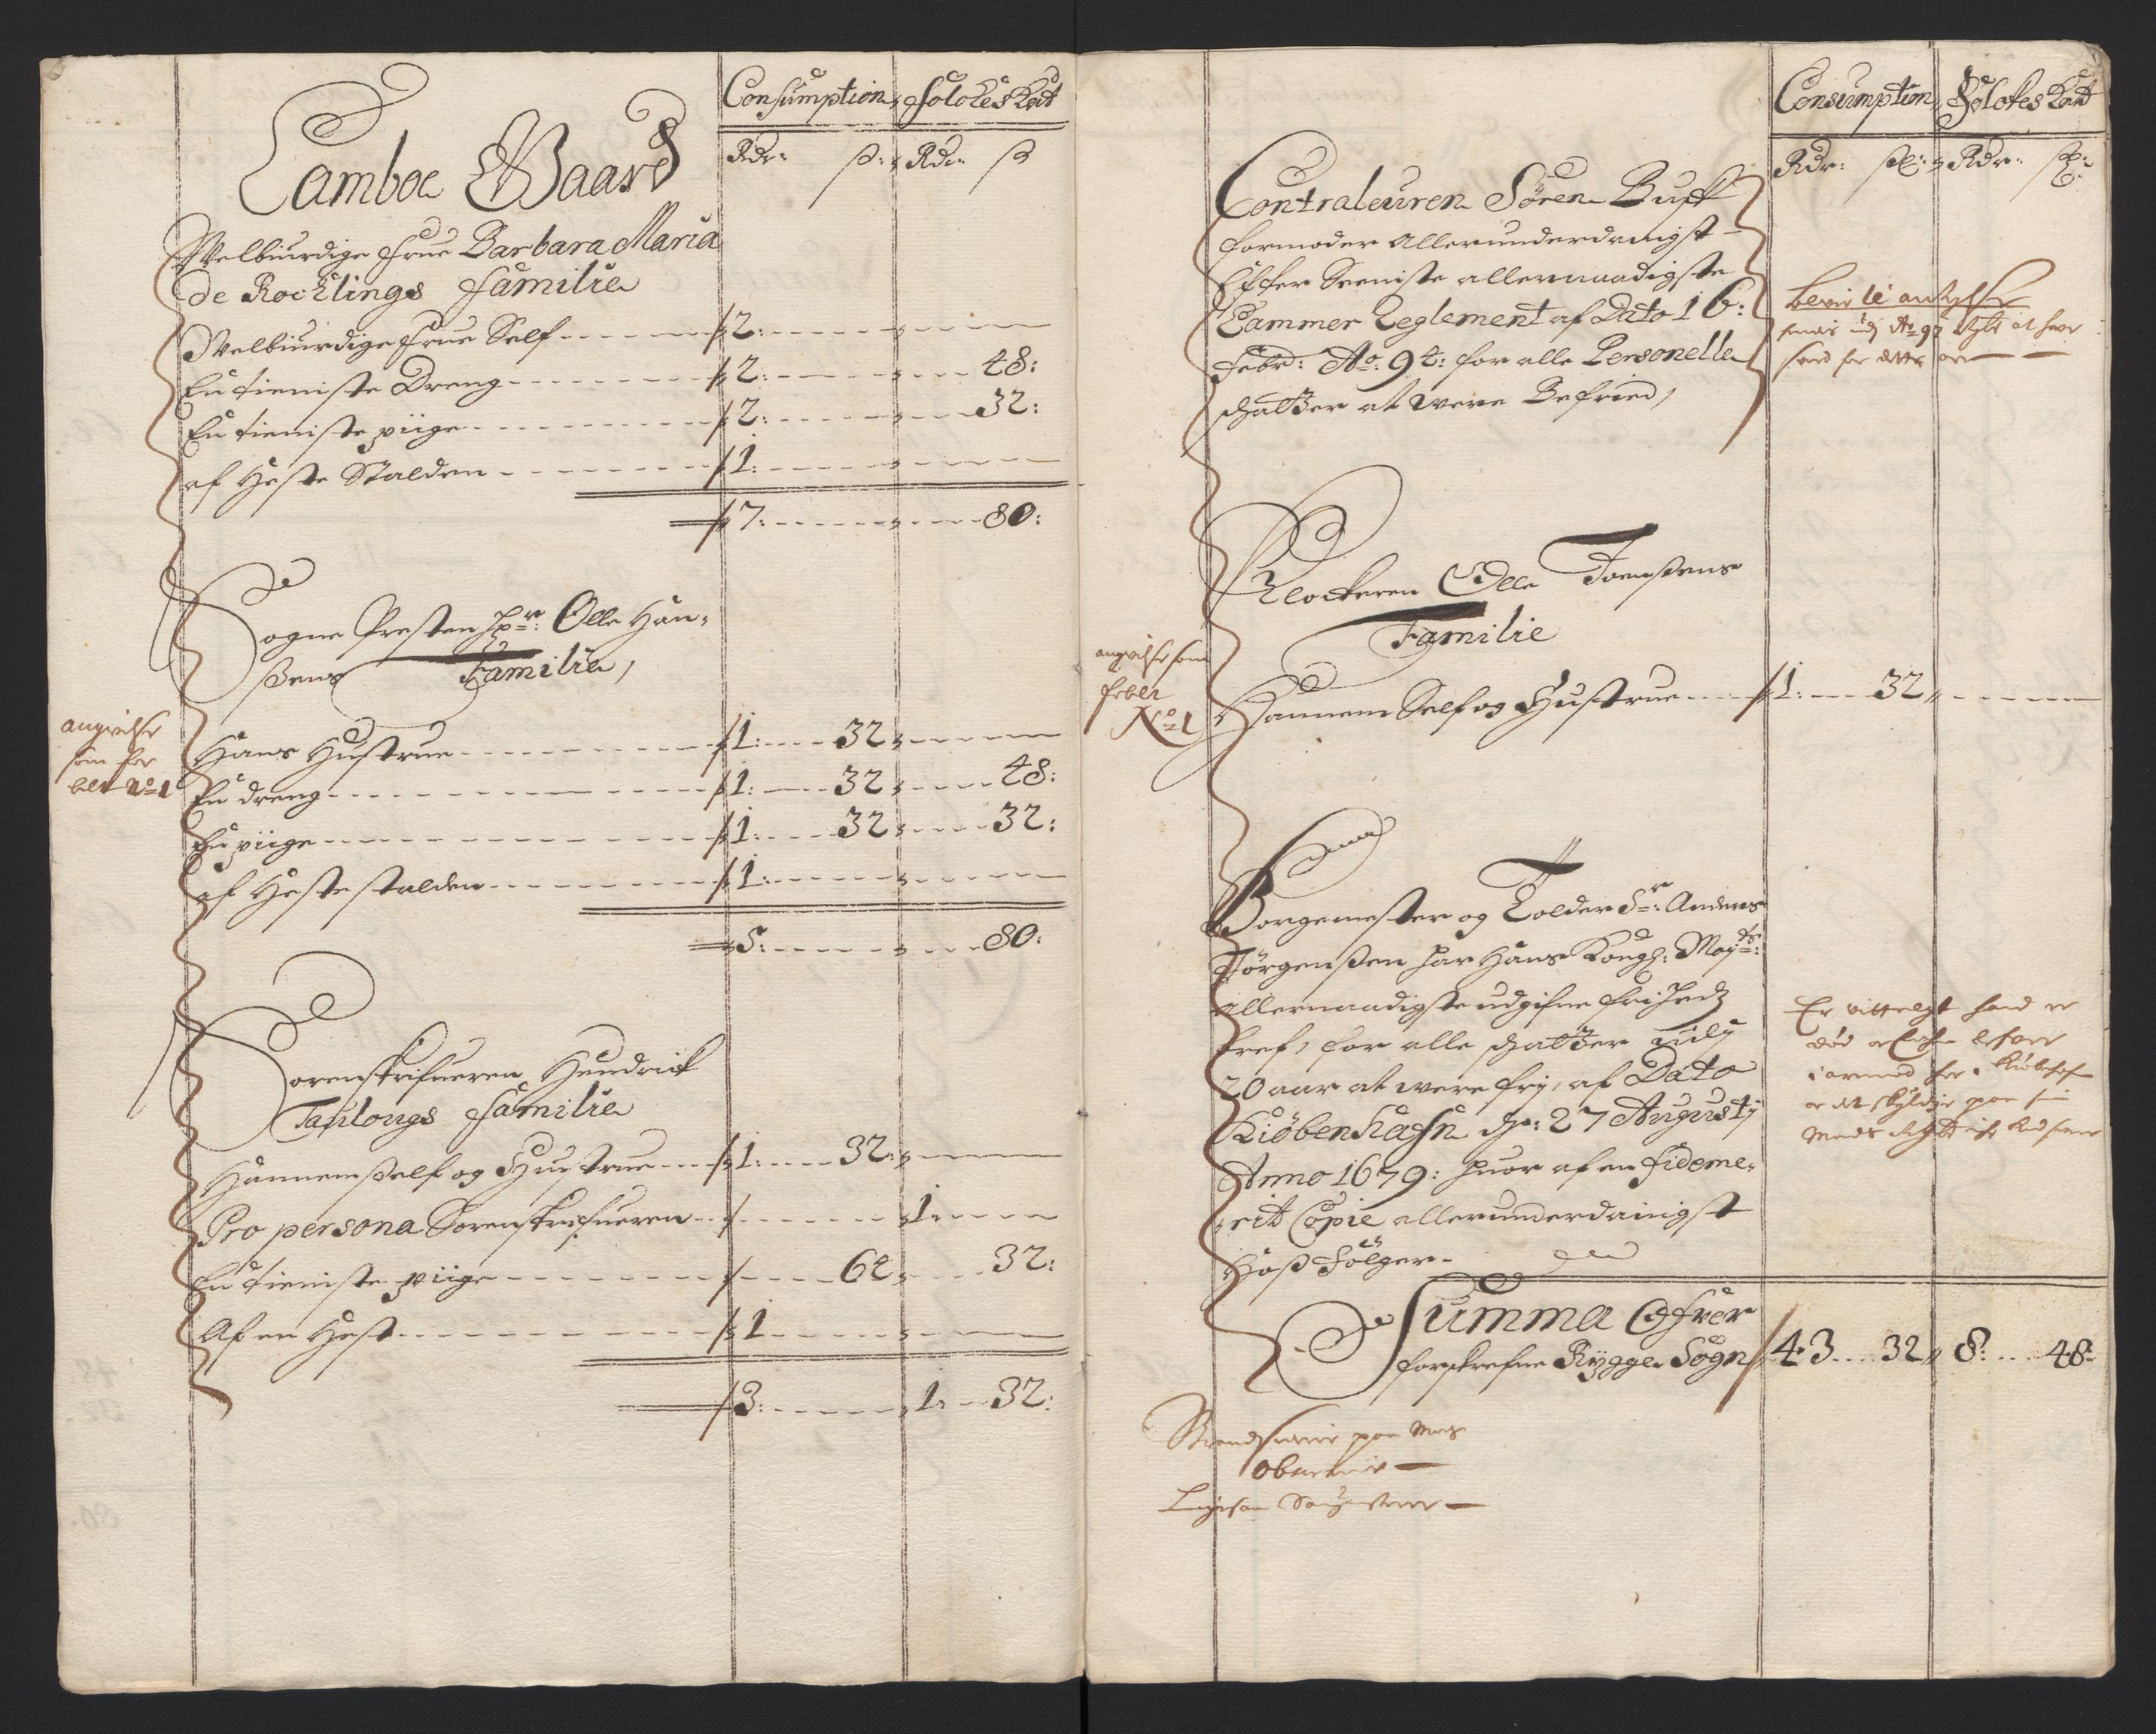 Consumption Folckes Skat
Rdr: ß: Rdr ß
Camboe Gaard
Welbiurdige Frue Barbara Maria
de Rocklings Familie
Welbiurdige Frue Self 2:
En tieniste Dreng 2: 48:
En tieniste piige 2: 32:
af Heste Stalden 1:
7: 80:
Sogne Presten Hr: Olle Han-
ßens Familie,
angivelse
som for
Hans Hustrue 1: 32
En dreng 1: 32 48:
No 1
En piige 1: 32 32:
af Hestestalden 1:
5: 80:
Sorenskrifueren Hendrick
Tanlougs Familie
Hannem self og Hustrue 1: 32:
Pro persona Sorenskrifueren 1:
En tieniste piige 64 32:
Af en Hest 1
3: 1: 32:
Consumption Folckes Skat
Rdr: ß: Rdr: ß:
Contraleuren Sören Buff
formoder allerunderdanigst
Effter Seeniste allernaadigste
Cammer Reglement af Dato 16:
Febr: Ao: 94: for alle Personelle
schatter at were Befried,
Klockeren Olle Joenßens
Familie
angivelse som
No 1
Hannem Self og Hustrue 1: 32
Borgemester og Tolder Sr: Anders
Jörgenßen har Hans Kongl: Mayts:
allernaadigste udgifne friheds
bref, for alle schatter udj
20 aar at were frj, af Dato
Kiöbenhafn d: 27 Augustj
Anno 1679: huor af en fideme-
rit Copie allerunderdanigst
Hoß Fölger.
Er vitterligt hand er
död
Summa Ofver
forskrefne Rygge Sogn 43 32 8: 48: